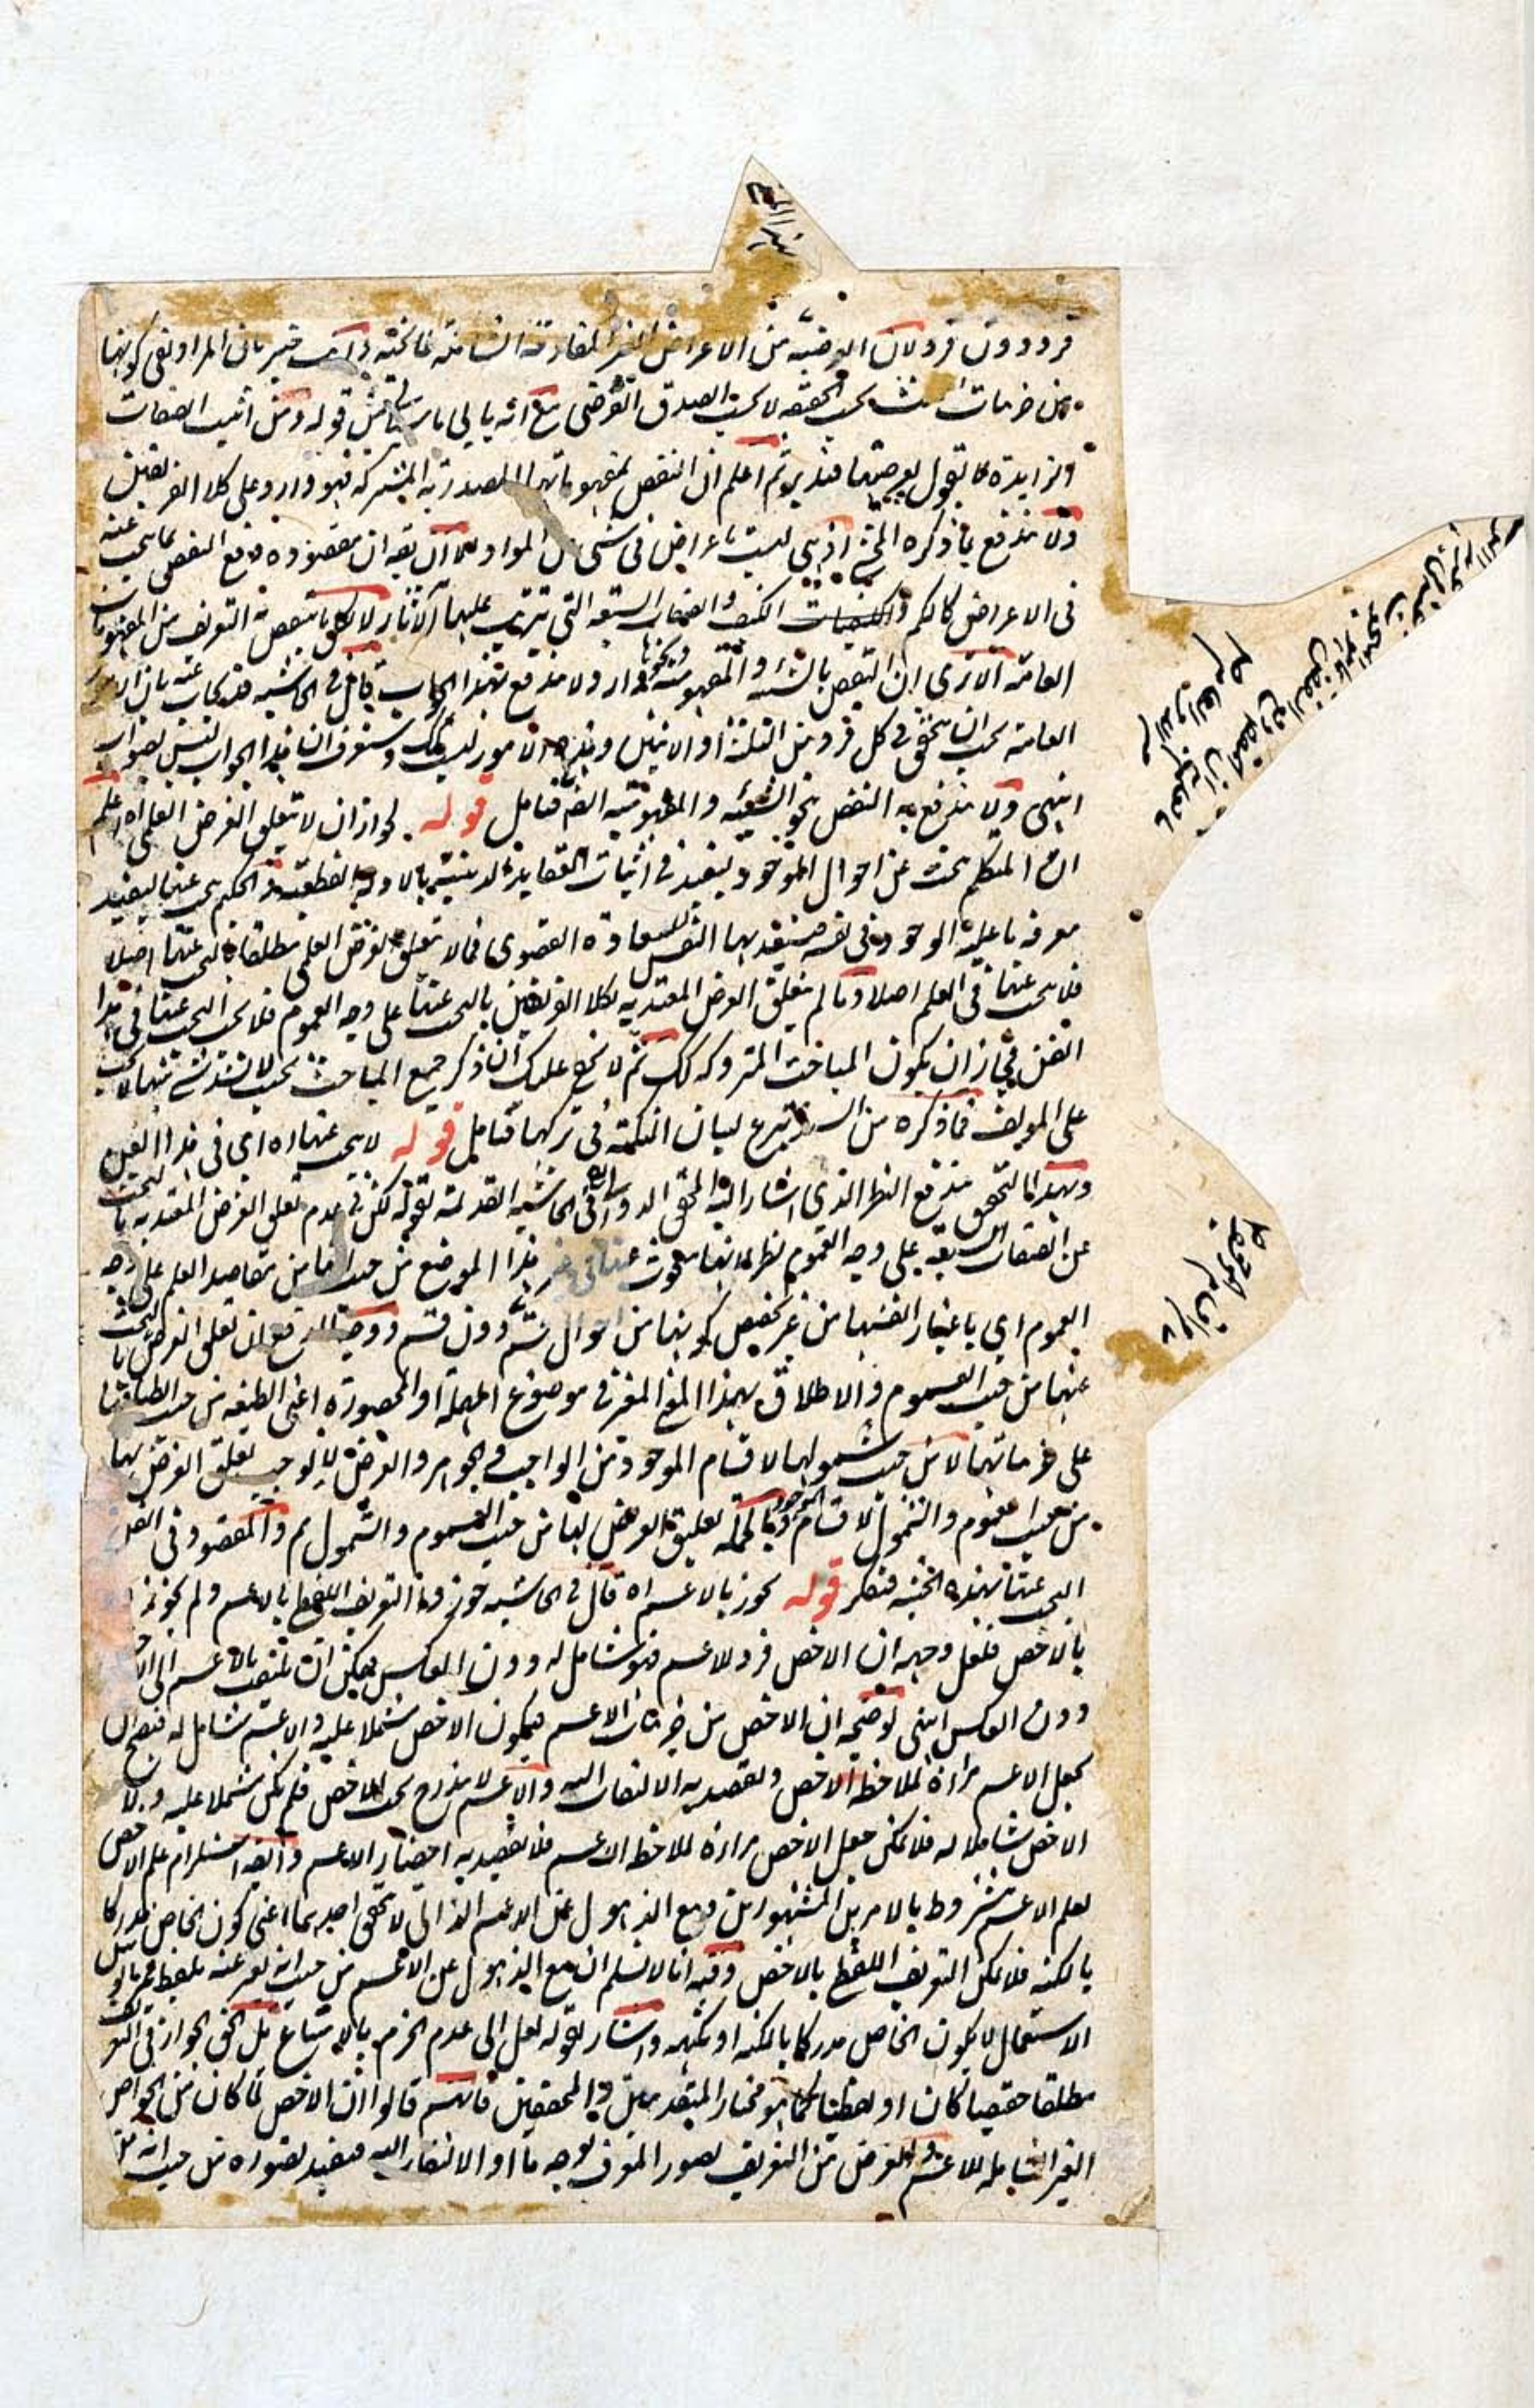 فرد دون فرد لان العرضية من الاعراض الغير المفارقة الشاملة فالحقيقة وانت خبير بان المراد نفى كونها
من جزئيات الثلث بحسب الحقيقة لا بحسب الصدق العرضى مع انه يابى ما سياتى من قوله ومن اثبت الصفات
الزايدة لا يقول بعرضيتها فتدبر ثم اعلم ان النقض بمفهوماتها المصدرية المشتركة فهو وارد على كلا الفريقين
ولا يندفع بما ذكره المحشى اذ هى ليست باعراض فى شئ من المواد الا ان يقال ان مقصوده دفع النقض بما يبحث عنه
فى الاعراض كالكم والكيف والصفات السبعة التى يترتب عليها الآثار لا بكل ما ينقض به التعريف من المفهومات
العامة الا ترى ان النقض بالشيئية والمفهومية ونحوها وارد ولا يندفع بهذا الجواب قال فى الحاشية قد يجاب عنه بان الامور
العامة يجب ان يتحقق فى كل فرد من الثلثة او الاثنين وهذه الامور ليست كذلك وستعرف ان هذا الجواب ليس بصواب
انتهى ولا يندفع به النقض بنحو الشيئية والمفهومية ايضا فتامل قوله لجواز ان لا يتعلق الغرض العلمى اه اعلم
ان المتكلم يبحث عن احوال الموجود ليفيد فى اثبات العقايد الدينية بالادلة القطعية والحكيم يبحث عنها ليفيد
معرفة ما عليه الموجود فى نفسه فيستفيد بها النفس السعادة القصوى فما لا يتعلق الغرض العلمى مطلقا بالبحث عنها اصلا
فلا يبحث عنها فى العلم اصلا وما لم يتعلق الغرض المعتد به لكلا الفريقين بالبحث عنها على وجه العموم فلا يجب البحث عنها فى هذا
الفن فيجاز ان يكون المباحث المتروكة كذلك ثم لا يخفى عليك ان ذكر جميع المباحث بحيث لا يشذ شئ منها لا يجب
على المولف فما ذكره من السند تبرع لبيان النكتة فى تركها فتامل قوله لا يبحث عنها اه اى فى هذا الفن
وبهذا التحقيق يندفع النظر الذى اشار اليه المحقق الدوانى فى الحاشية القديمة بقوله لكن فى عدم تعلق الغرض المعتد به بالبحث
عن الصفات السبعة على وجه العموم نظر لانها مبحوث عنها فى غير هذا الموضع من حيث انها من مقاصد العلم على وجه
العموم اى باعتبار انفسها من غير تخصيص كونها من احوال قسم دون قسم ووجه الدفع ان تعلق الغرض بالبحث
عنها من حيث العموم والاطلاق بهذا المعنى المعتبر فى موضوع المهملة او المحصورة اعنى الطبيعة من حيث انطباقها
على جزئياتها لا من حيث شمولها لاقسام الموجود من الواجب والجوهر والعرض لا يوجب تعلق الغرض بها
من حيث العموم والشمول لاقسام الموجود وبالجملة تعلق الغرض بها من حيث العموم والشمول مم والمقصود فى الفن
البحث عنها بهذه الحيثية فتفكر قوله يجوز بالاعم اه قال فى الحاشية جوزوا التعريف اللفظى بالاعم ولم يجوزوا
بالاخص فلعل وجهه ان الاخص فرد للاعم فهو شامل له دون العكس فيمكن ان يلتفت بالاعم الى الاخص
دون العكس انتهى توضيحه ان الاخص من جزئيات الاعم فيكون الاخص مشتملا عليه والاعم شامل له فيصح ان
يجعل الاعم مرآة لملاحظة الاخص ويقصد به الالتفات اليه والاعم لا يندرج تحت الاخص فلم يكن مشتملا عليه ولا
الاخص شاملا له فلا يمكن جعل الاخص مرآة لملاحظة الاعم فلا يقصد به احضار الاعم وايضا استلزام علم الاخص
لعلم الاعم مشروط بالامرين المشهورين ومع الذهول عن الاعم الذاتى لا يتحقق احدهما اعنى كون الخاص مدركا
بالكنه فلا يمكن التعريف اللفظى بالاخص وفيه انا لا نسلم ان مع الذهول عن الاعم من حيث انه يعبر عنه بلفظ غير مانوس
الاستعمال لا يكون الخاص مدركا بالكنه او بكنهه واشار بقوله لعل الى عدم الجزم بالامتناع بل الحق الجواز فى التعريف
مطلقا حقيقيا كان او لفظيا كما هو مختار المتقدمين والمحققين فانهم قالوا ان الاخص لما كان من الخواص
الغير الشاملة للاعم والغرض من التعريف تصور المعرف بوجه ما او الالتفات اليه فيفيد تصوره من حيث انه من